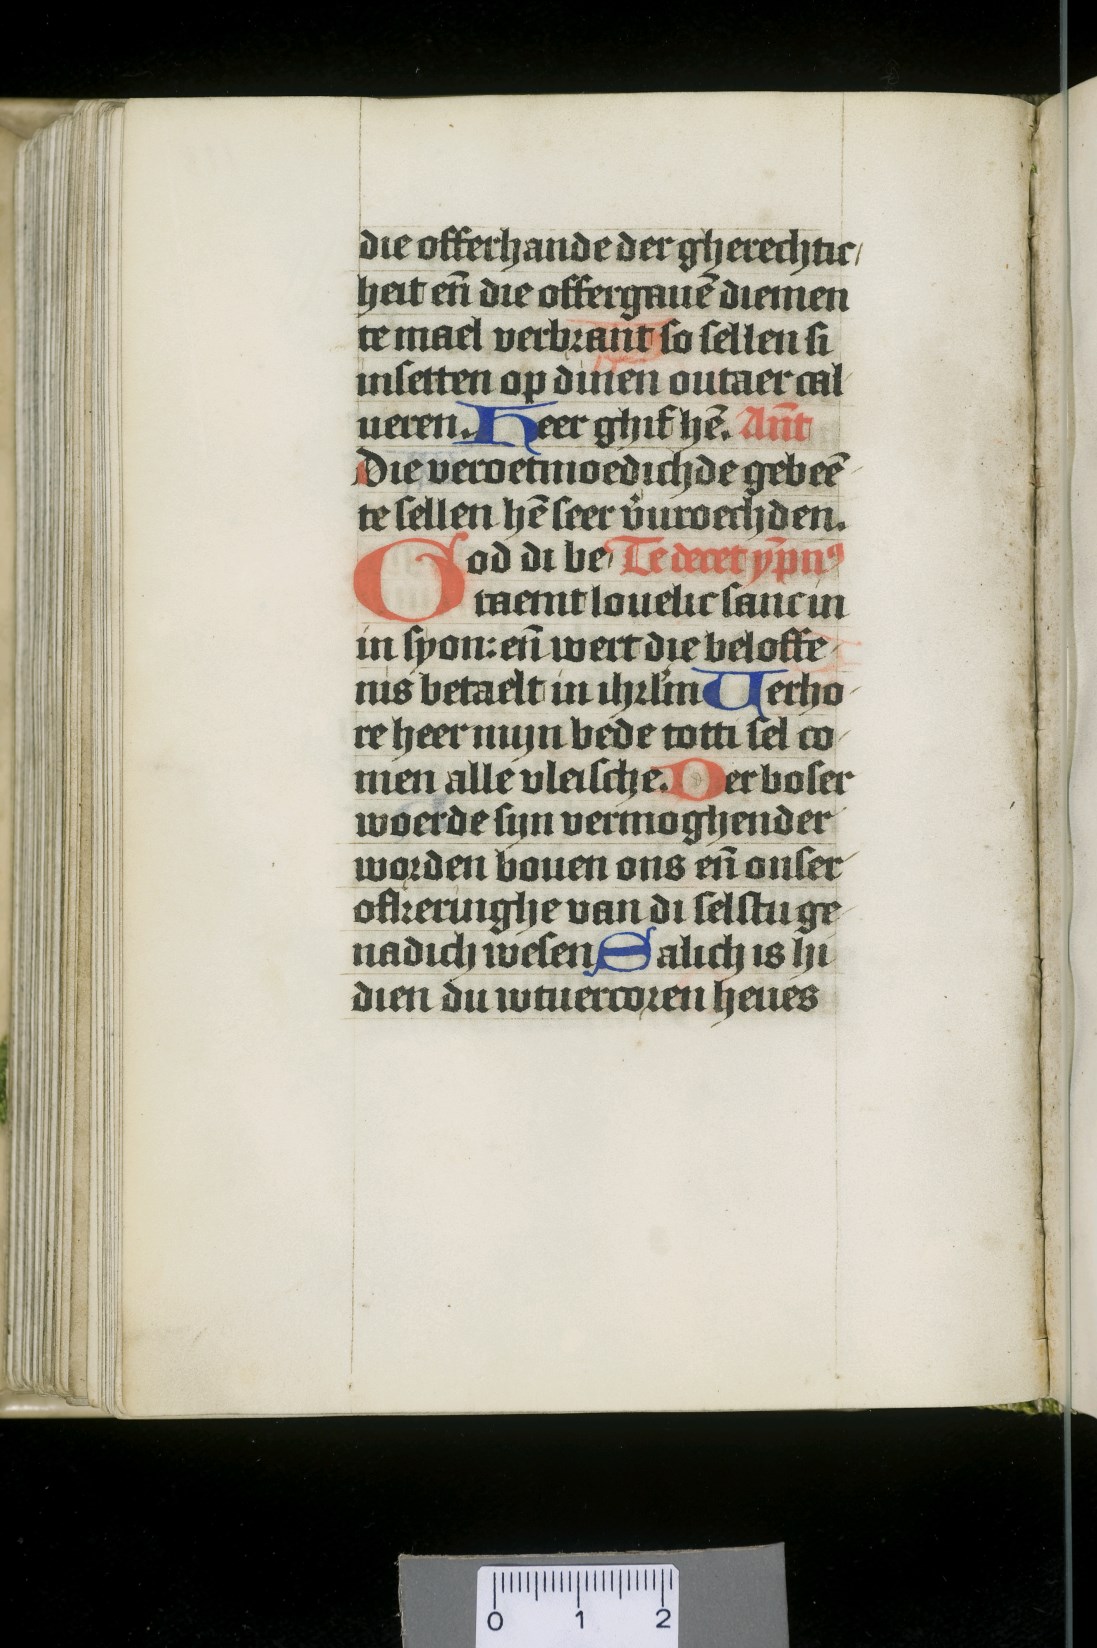 die offerhande der gherechtic
heit en̄ die offergauē diemen
te mael verbrant so sellen si
insetten op dinen outaer cal
ueren. Heer ghif hē. Ant̄
Die veroetmoedichde gebeē
te sellen hē seer v̄uroechden.
God di be Te decet yp̄nꝰ
taemt louelic sanc in
in syon: en̄ wert die beloffe
nis betaelt in ihrl̄m Uerho
re heer mijn bede totti sel co
men alle vleische. Der boser
woerde sijn vermoghender
worden bouen ons en̄ onser
oflzeringhe van di selstu ge
nadich wesen Salich is hi
dien du wtuercoren heues
0 1 2